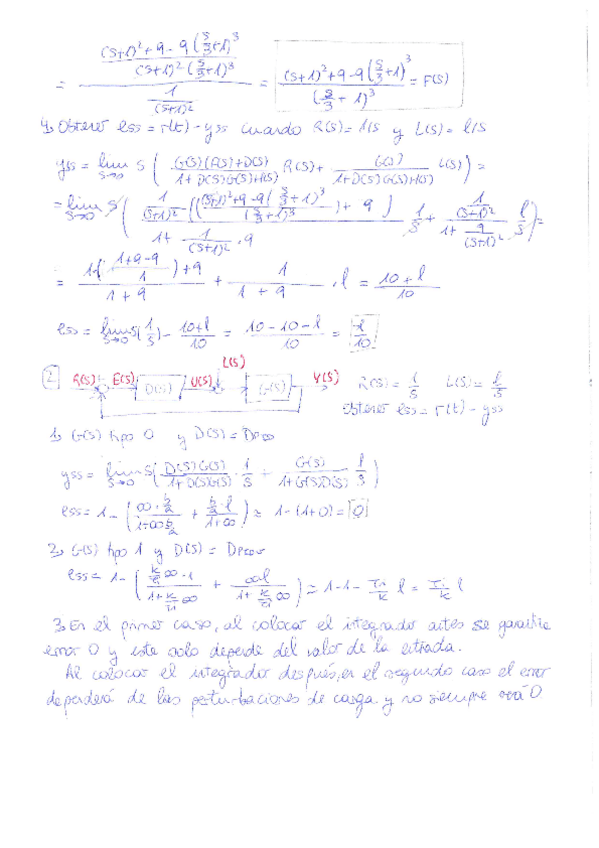 = ((s+1)²+9-9(s/3+1)³ / (s+1)²(s/3+1)³) / (1/(s+1)²) = (s+1)²+9-9(s/3+1)³ / (s/3+1)³ = F(s)
4) Obtener ess = r(t) - yss cuando R(s)=1/s y L(s)=l/s
yss = lim s→0 s( G(s)(F(s)+D(s)) / 1+D(s)G(s)H(s) R(s) + G(s) / 1+D(s)G(s)H(s) L(s) ) =
= lim s→0 s( 1/(s+1)² (((s+1)²+9-9(s/3+1)³ / (s/3+1)³) + 9) / 1+ 1/(s+1)² · 9 · 1/s + 1/(s+1)² / 1+ 9/(s+1)² · l/s ) =
= 1·(1+9-9 / 1)+9 / 1+9 + 1 / 1+9 · l = 10+l / 10
ess = lim s→0 s(1/s) - 10+l / 10 = 10-10-l / 10 = -l/10
2. R(s) E(s) D(s) U(s) L(s) G(s) Y(s) R(s)=1/s L(s)=l/s
Obtener ess = r(t) - yss
1) G(s) tipo 0 y D(s) =
yss = lim s→0 s( D(s)G(s) / 1+D(s)G(s) · 1/s + G(s) / 1+G(s)D(s) l/s )
ess = 1 - ≈ 1-(1+0) = 0
2) G(s) tipo 1 y D(s) =
ess = 1 - ≈ 1-1- Ti/k l = Ti/k l
3) En el primer caso, al colocar el integrador antes se garantiza
error 0 y este solo depende del valor de la entrada.
Al colocar el integrador después, en el segundo caso el error
dependerá de las perturbaciones de carga y no siempre será 0